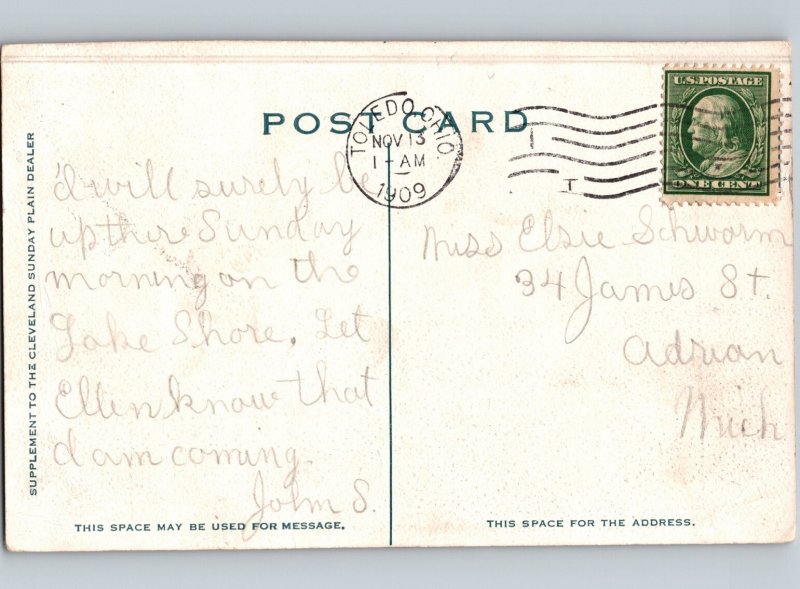 U.S. POSTAGE
ONE CENT
POST CARD
TOLEDO, OHIO.
NOV 13
1-AM
1909
T
SUPPLEMENT TO THE CLEVELAND SUNDAY PLAIN DEALER
I will surely be
up there Sunday
morning on the
Lake Shore. Let
Ellen know that
I am coming.
John S.
THIS SPACE MAY BE USED FOR MESSAGE.
Miss Elsie Schwarm
34 James St.
Adrian
Mich
THIS SPACE FOR THE ADDRESS.